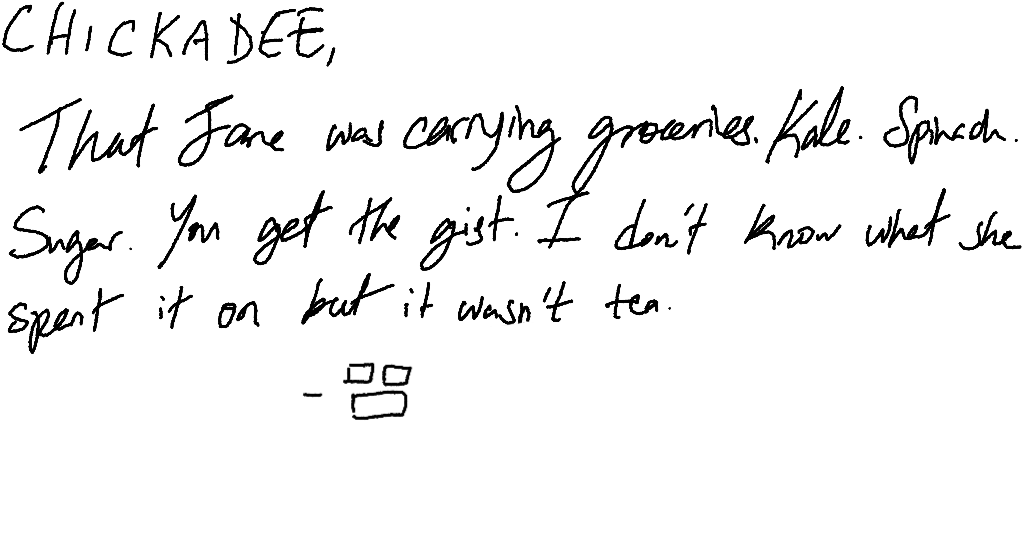 CHICKADEE,
That Jane was carrying groceries. Kale. Spinach.
Sugar. You get the gist. I don't know what she
spent it on but it wasn't tea.
-